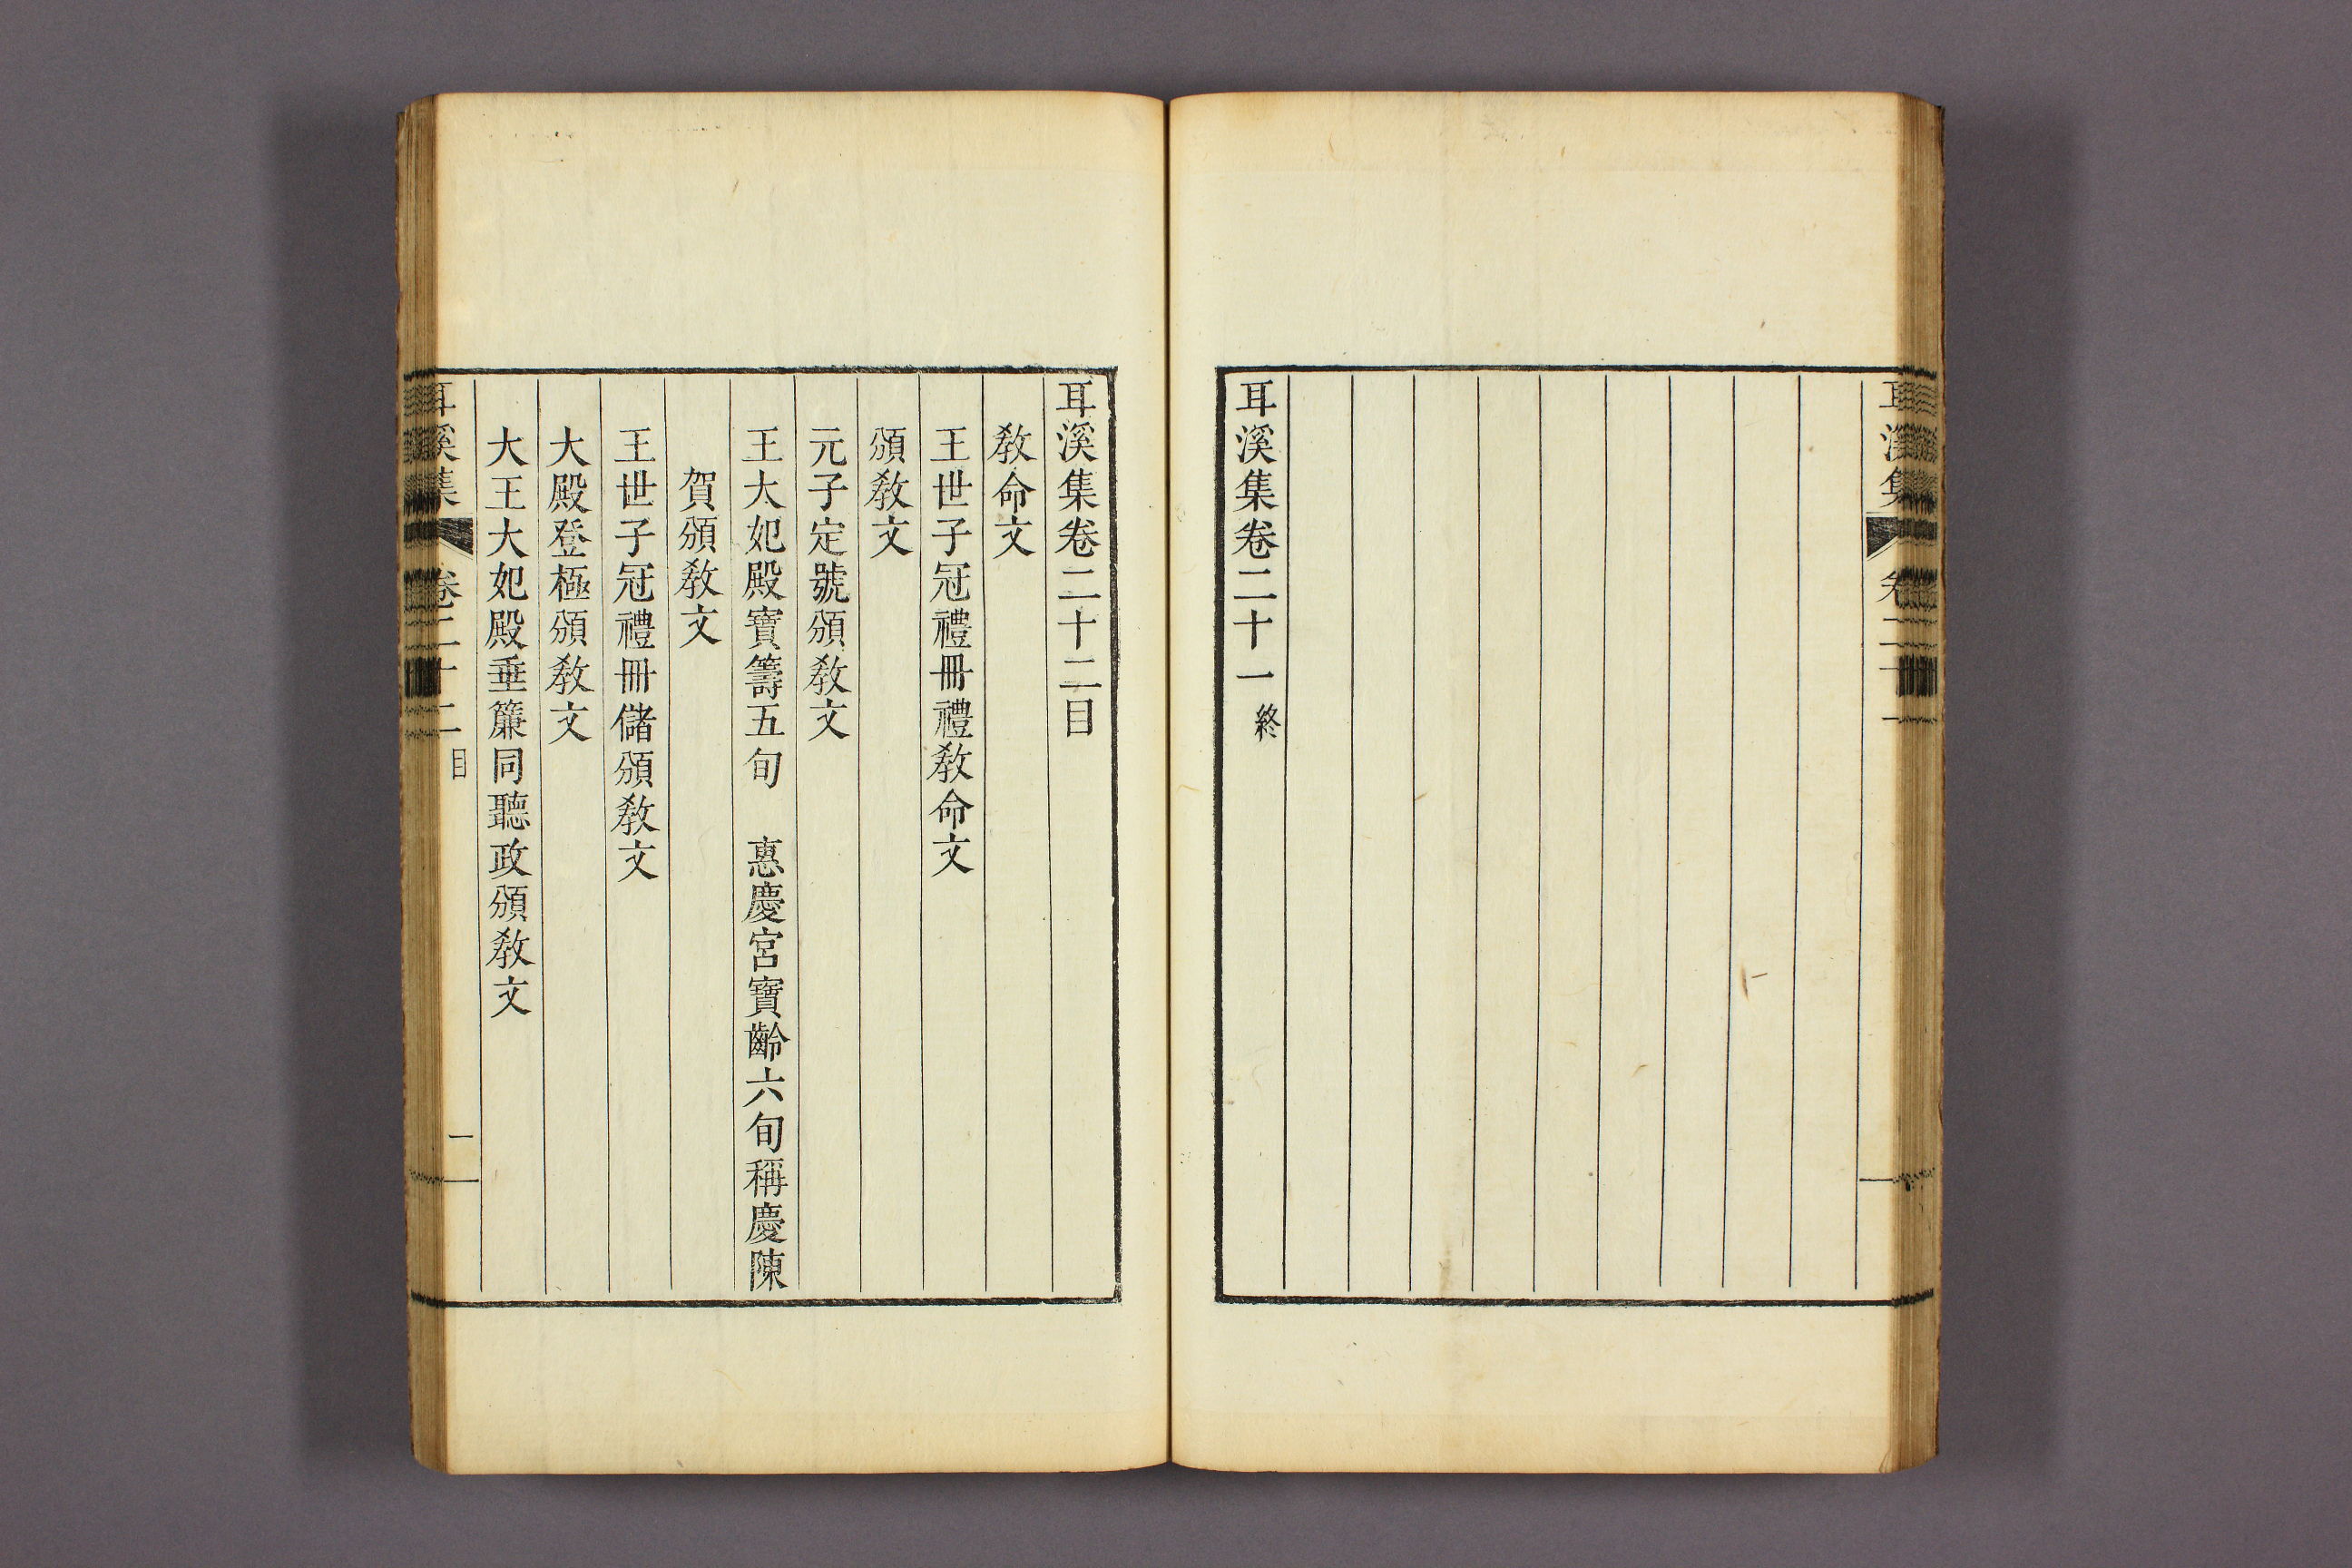 耳溪集
卷二十一
耳溪集卷二十一終
耳溪集卷二十二目
教命文
王世子冠禮冊禮教命文
頒教文
元子定號頒教文
王大妃殿寶籌五旬　惠慶宮寶齡六旬稱慶陳
賀頒教文
王世子冠禮冊儲頒教文
大殿登極頒教文
大王大妃殿垂簾同聽政頒教文
耳溪集
卷二十二目
一